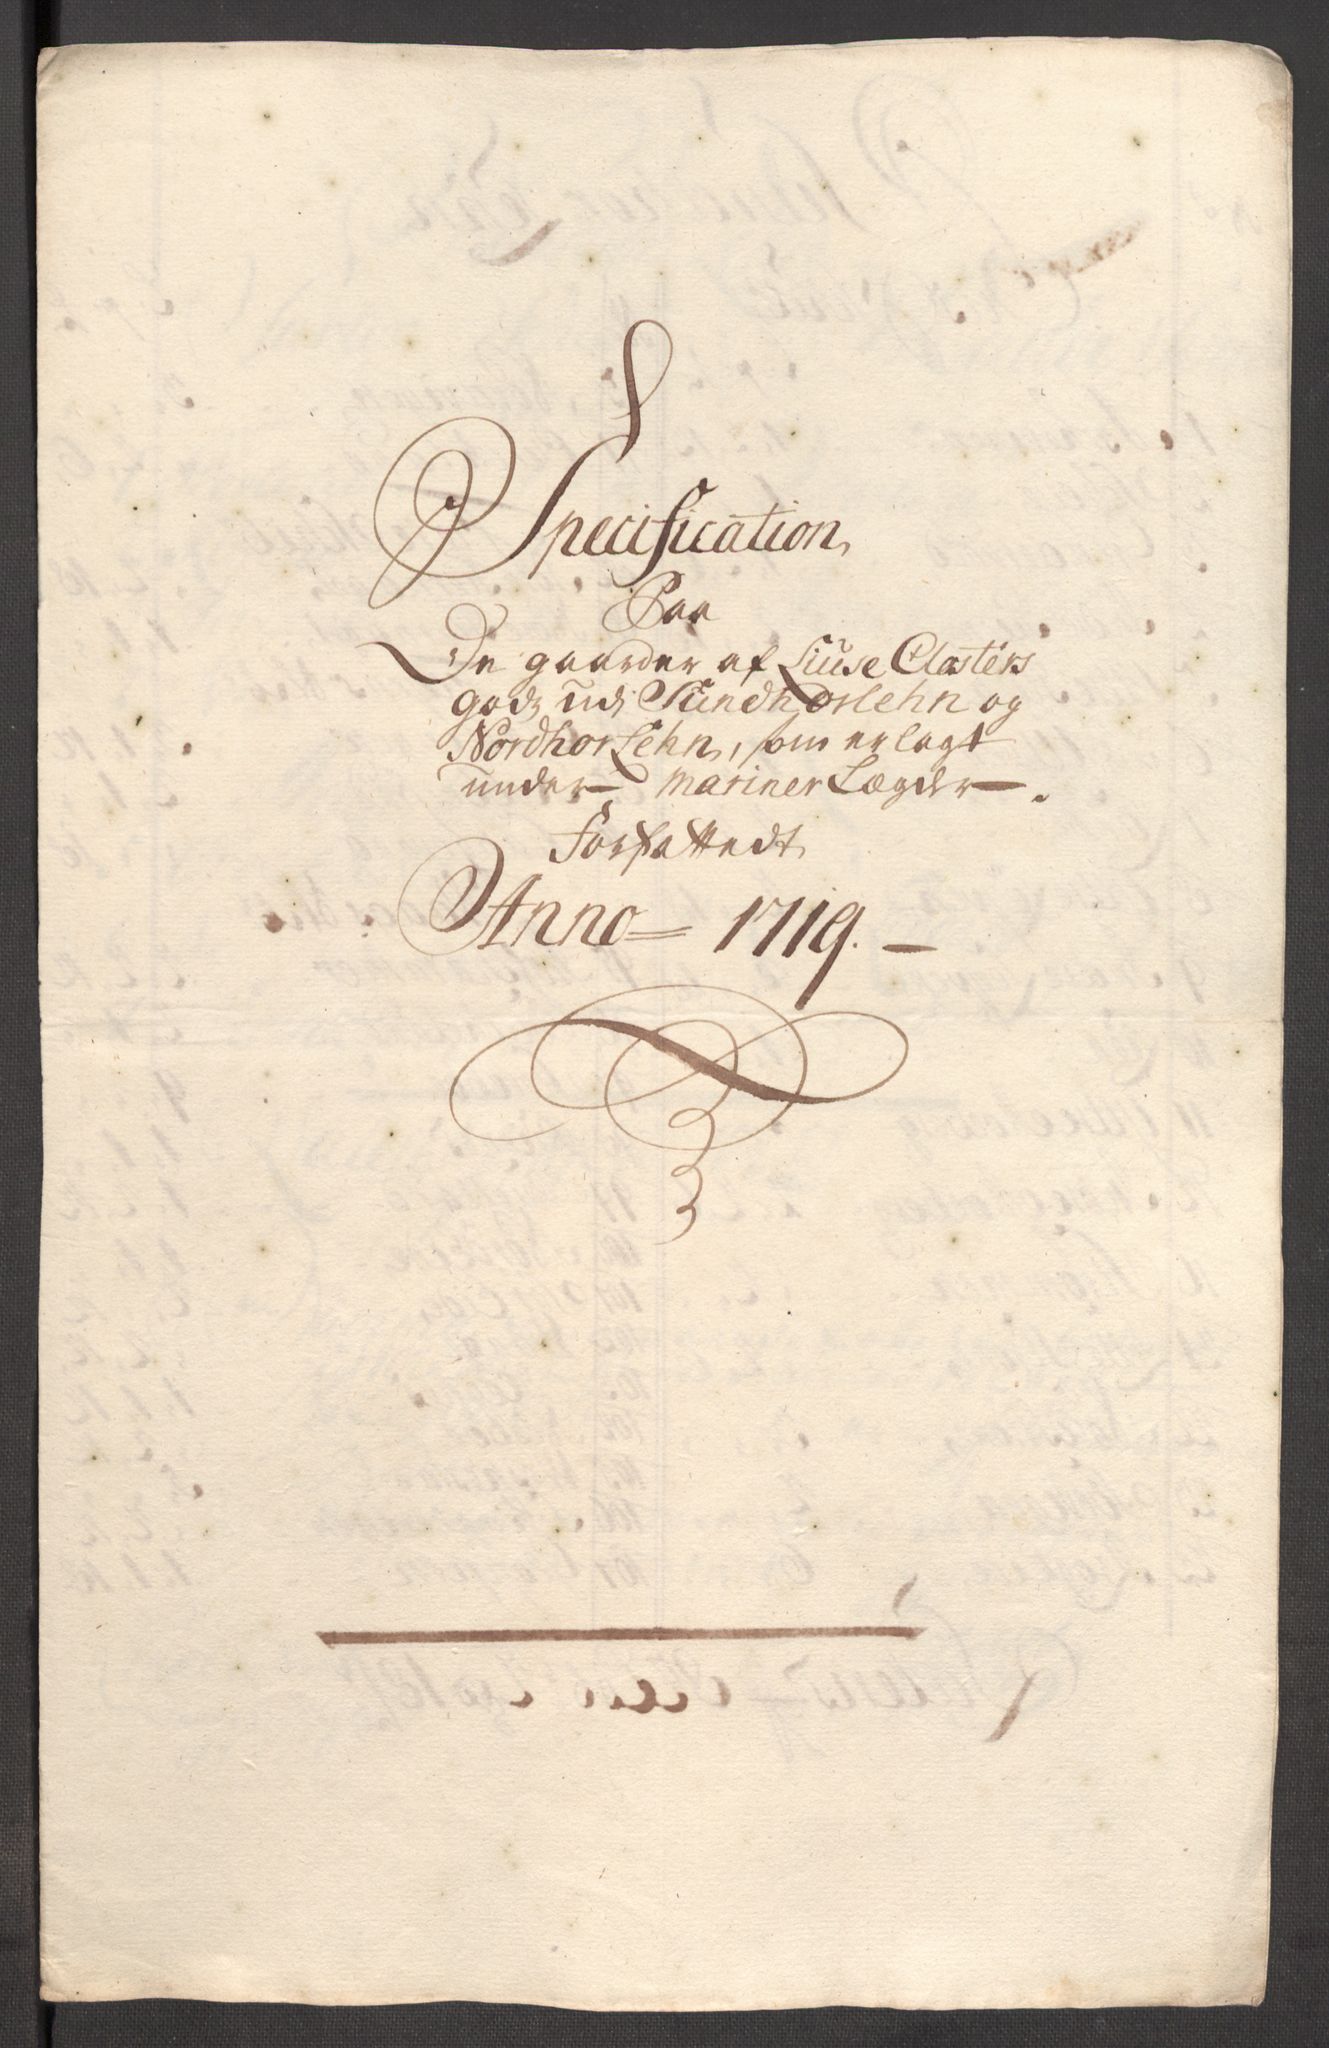 Specification
Paa
De gaarder af Liuse Closters
godz udj Sundhorlehn og
Nordhorlehn, som er lagt
under Mariner Lægder.
Forfattedt
Anno 1719.